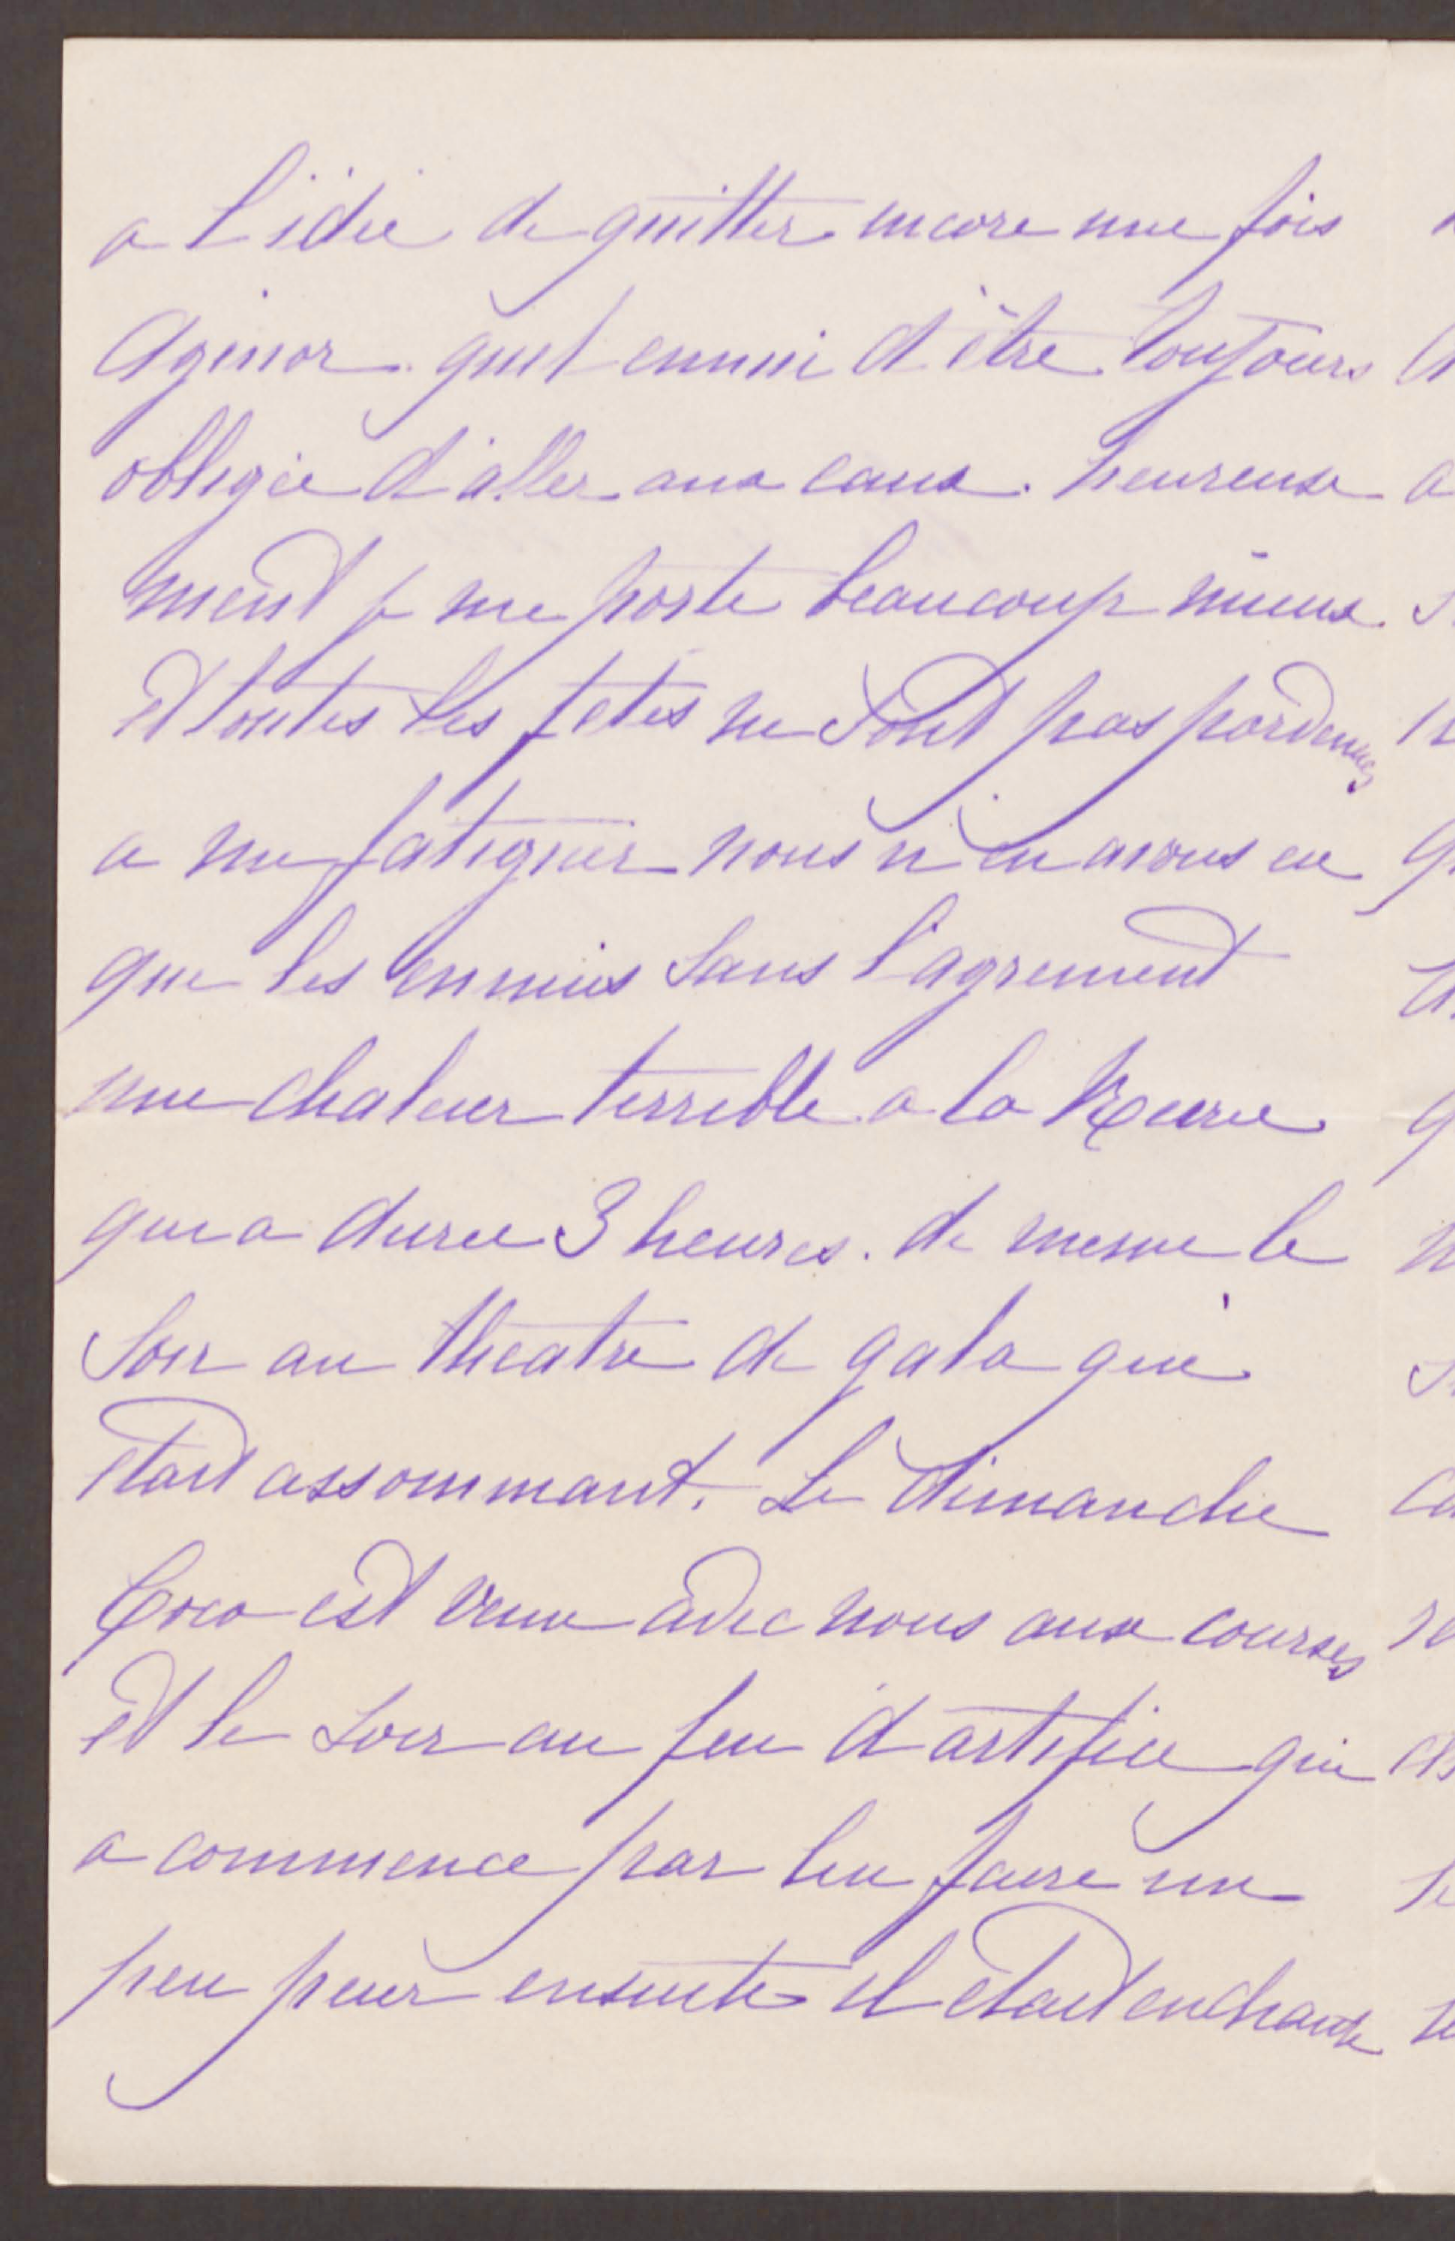 a l'idée de quitter encore une fois
Agenor. quel ennui d'être toujours
obligée d'aller aux eaux. heureuse
ment je me porte beaucoup mieux.
et toutes les fetes ne sont pas parvenues
a me fatiguer nous n'en avons eu
que les ennuis sans l'agrement
une chaleur terrible a la Revue
qui a duree 3 heures. de meme le
soir au theatre de gala qui
etait assommant. Le dimanche
Coco est venu avec nous aux courses
et le soir au feu d'artifice qui
a commence par lui faire un
peu peur ensuite il etait enchante